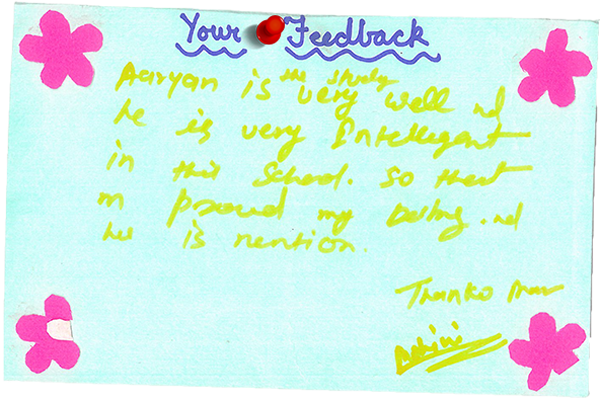 Your Feedback
Aaryan is the study very well nd
he is very Intellegent
in this School. So thert
m proud my Dating. nd
he is mention.
Thanks Mam